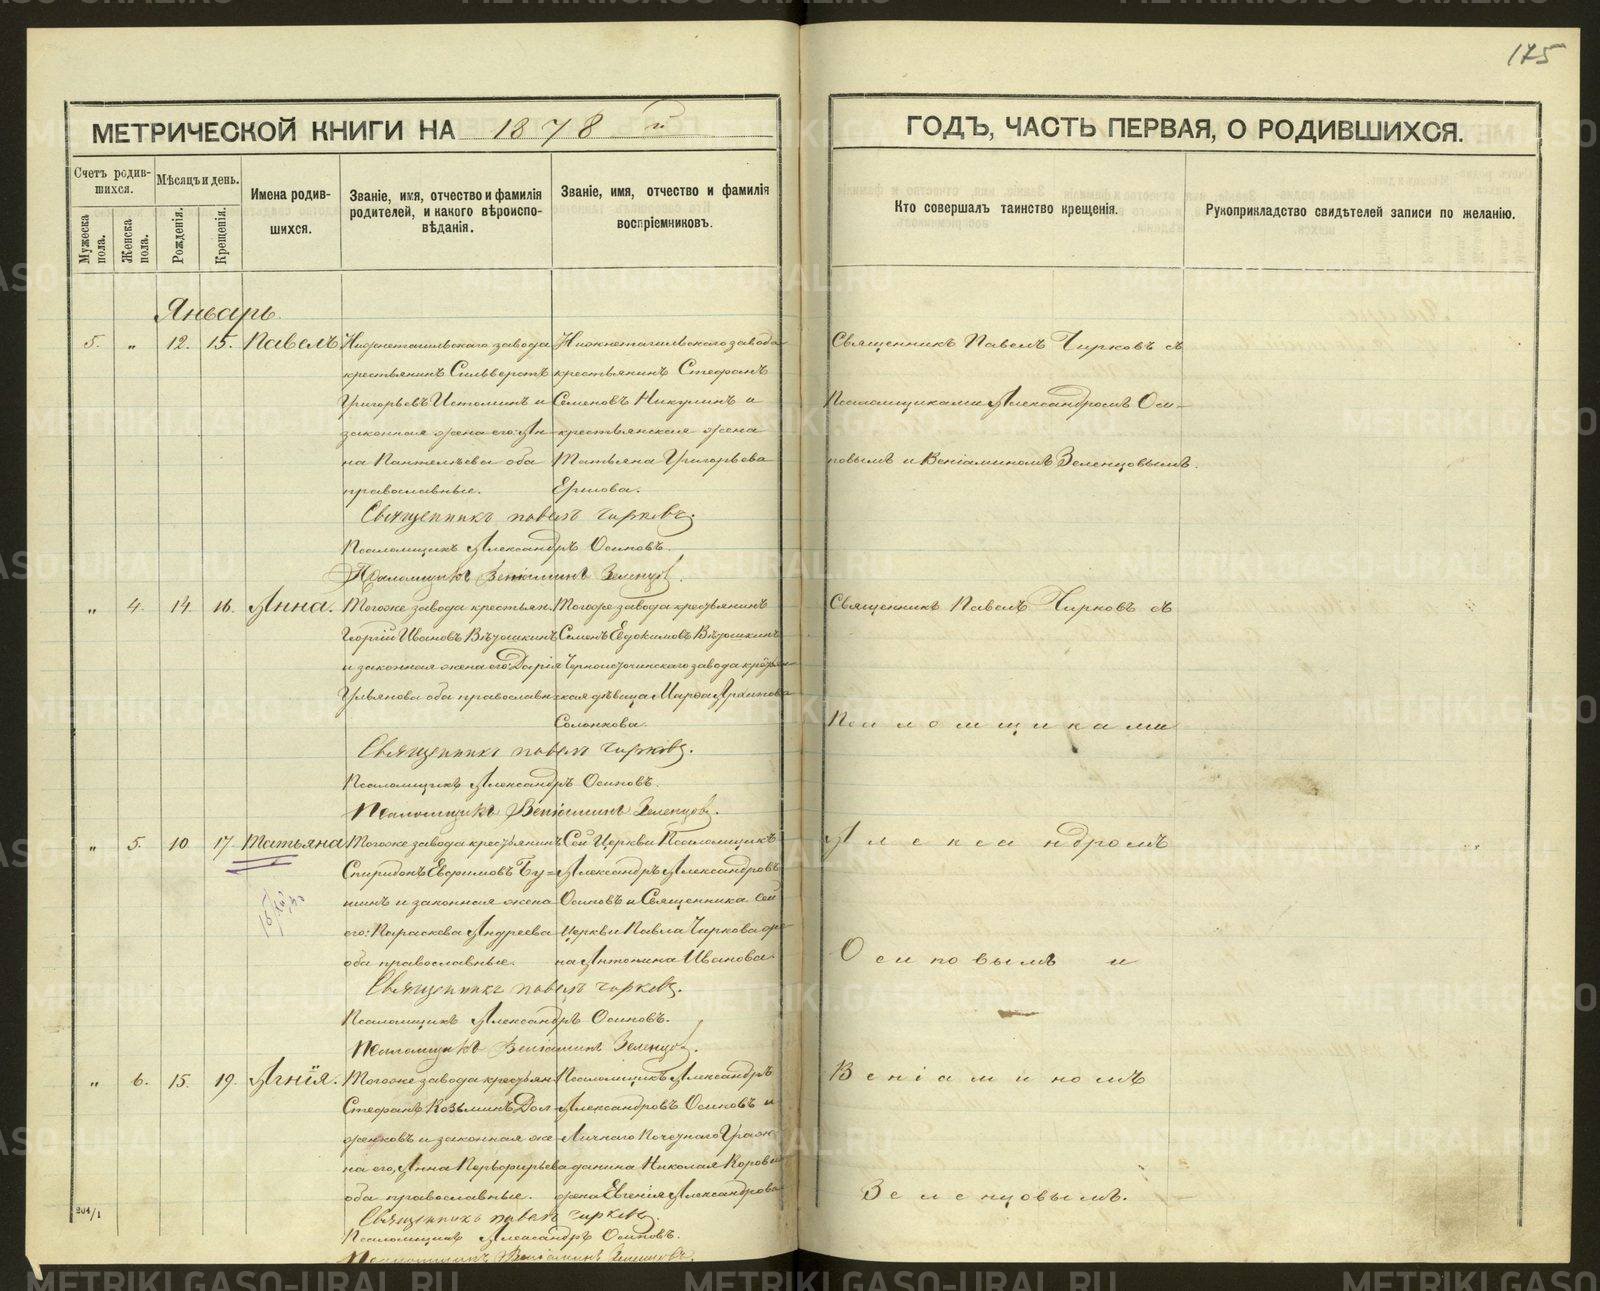 175
МЕТРИЧЕСКОЙ КНИГИ НА 1878 й
ГОДЪ, ЧАСТЬ ПЕРВАЯ, О РОДИВШИХСЯ.
Счетъ родив-
шихся.
Мужеска пола.
Женска пола.
Мѣсяцъ и день.
Рожденія.
Крещенія.
Имена родив-
шихся.
Званіе, имя, отчество и фамилія
родителей, и какого вѣроиспо-
вѣданія.
Званіе, имя, отчество и фамилія
воспріемниковъ.
Кто совершалъ таинство крещенія.
Рукоприкладство свидѣтелей записи по желанію.
Январь.
5. „ 12. 15. Павелъ
Нижнетагильскаго завода
крестьянинъ Сильверстъ
Григорьевъ Истоминъ и
законная жена его: Ан-
на Пантелѣева оба
православные.
Нижнетагильскаго завода
крестьянинъ Стефанъ
Семеновъ Никулинъ и
крестьянская жена
Татьяна Григорьева
Ершова.
Священникъ Павелъ Чирковъ съ
Псаломщиками Александромъ Оси-
повымъ и Веніаминомъ Зеленцовымъ.
Священникъ Павелъ Чирковъ.
Псаломщикъ Александръ Осиповъ.
Псаломщикъ Веніаминъ Зеленцовъ.
„ 4. 14. 16. Анна.
Тогоже завода крестьян.
Георгій Ивановъ Вѣтошкинъ
и законная жена его: Дарія
Ульянова оба православн
Тогоже завода крестьянинъ
Семенъ Евдокимовъ Вѣтошкинъ
Черноисточинскаго завода крестьян-
ская дѣвица Марѳа Архипова
Солонкова.
Священникъ Павелъ Чирковъ съ
Псаломщиками
Священникъ Павелъ Чирковъ.
Псаломщикъ Александръ Осиповъ.
Псаломщикъ Веніаминъ Зеленцовъ.
„ 5. 10 17. Татьяна
Тогоже завода крестьянинъ
Спиридонъ Евфимовъ Бу-
шинъ и законная жена
его: Параскева Андреева
оба православные.
Сей Церкви Псаломщикъ
Александръ Александровъ
Осиповъ и Священника сей
Церкви Павла Чиркова же-
на Антонина Иванова.
Александромъ
Осиповымъ и
Священникъ Павелъ Чирковъ.
Псаломщикъ Александръ Осиповъ.
Псаломщикъ Веніаминъ Зеленцовъ.
„ 6. 15. 19. Агнія.
Тогоже завода крестьян.
Стефанъ Козьминъ Дол-
женковъ и законная же-
на его, Анна Перьфирьева
оба православные.
Псаломщикъ Александръ
Александровъ Осиповъ и
Личнаго Почетнаго Граж-
данина Николая Коров
жена Евгенія Александрова
Веніаминомъ
Зеленцовымъ.
Священникъ Павелъ Чирковъ.
Псаломщикъ Александръ Осиповъ.
Псаломщикъ Веніаминъ Зеленцовъ.
204/1
METRIKI.GASO-URAL.RU